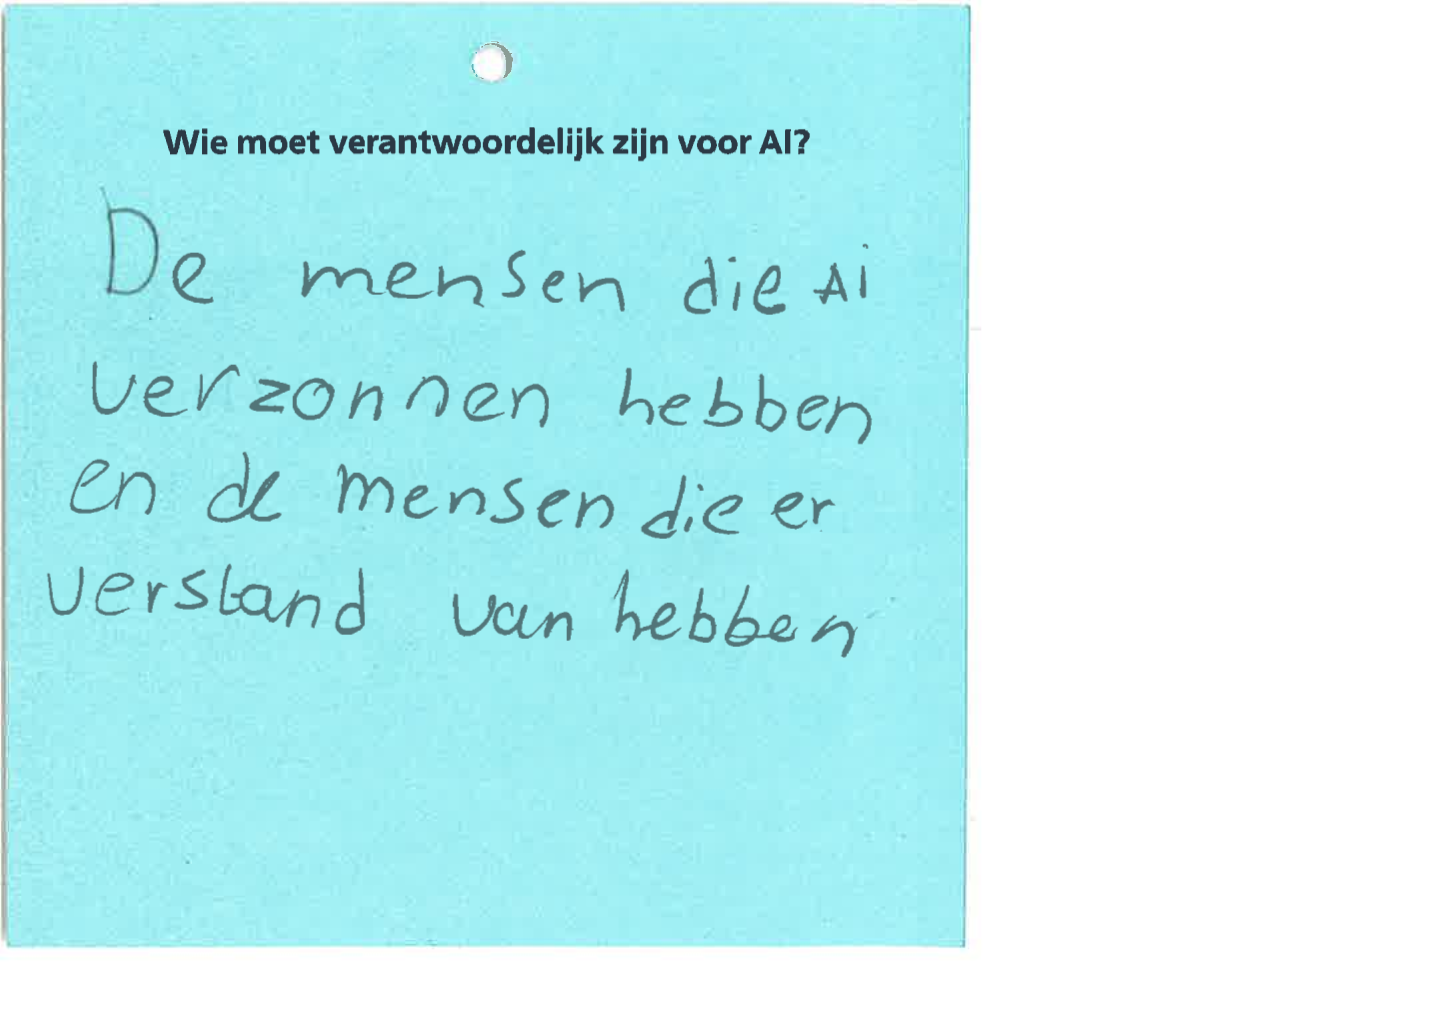 Wie moet verantwoordelijk zijn voor AI?
De mensen die Ai
verzonnen hebben
en de mensen die er
verstand van hebben